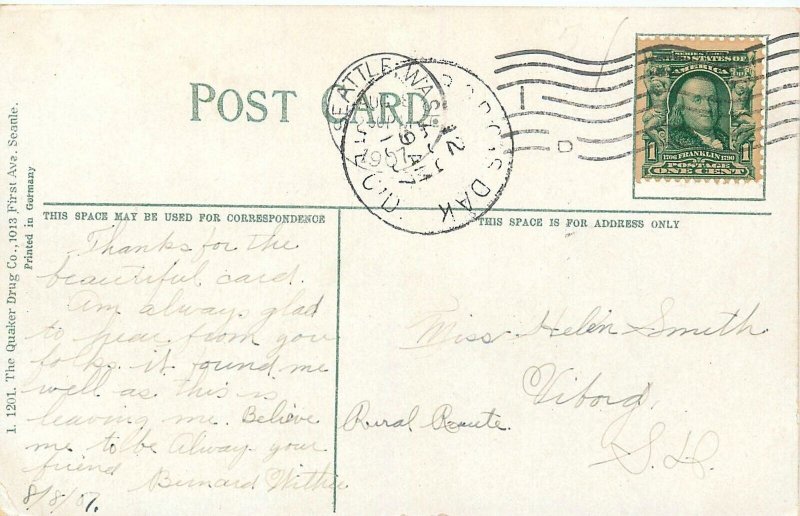 POST CARD.
SEATTLE, WASH.
1907
S. DAK
SERIES 1902
UNITED STATES OF
AMERICA
1706 FRANKLIN 1790
1 POSTAGE 1
ONE CENT
D
THIS SPACE MAY BE USED FOR CORRESPONDENCE
THIS SPACE IS FOR ADDRESS ONLY
I. 1201. The Quaker Drug Co., 1013 First Ave. Seanle.
Printed in Germany
Thanks for the
beautiful card.
Am always glad
to hear from you
folks. it found me
well as this is
leaving me. Believe
me to be Alway your
friend Bernard Withee
8/8/07.
Miss Helen Smith
Viborg,
Rural Route.
S.D.